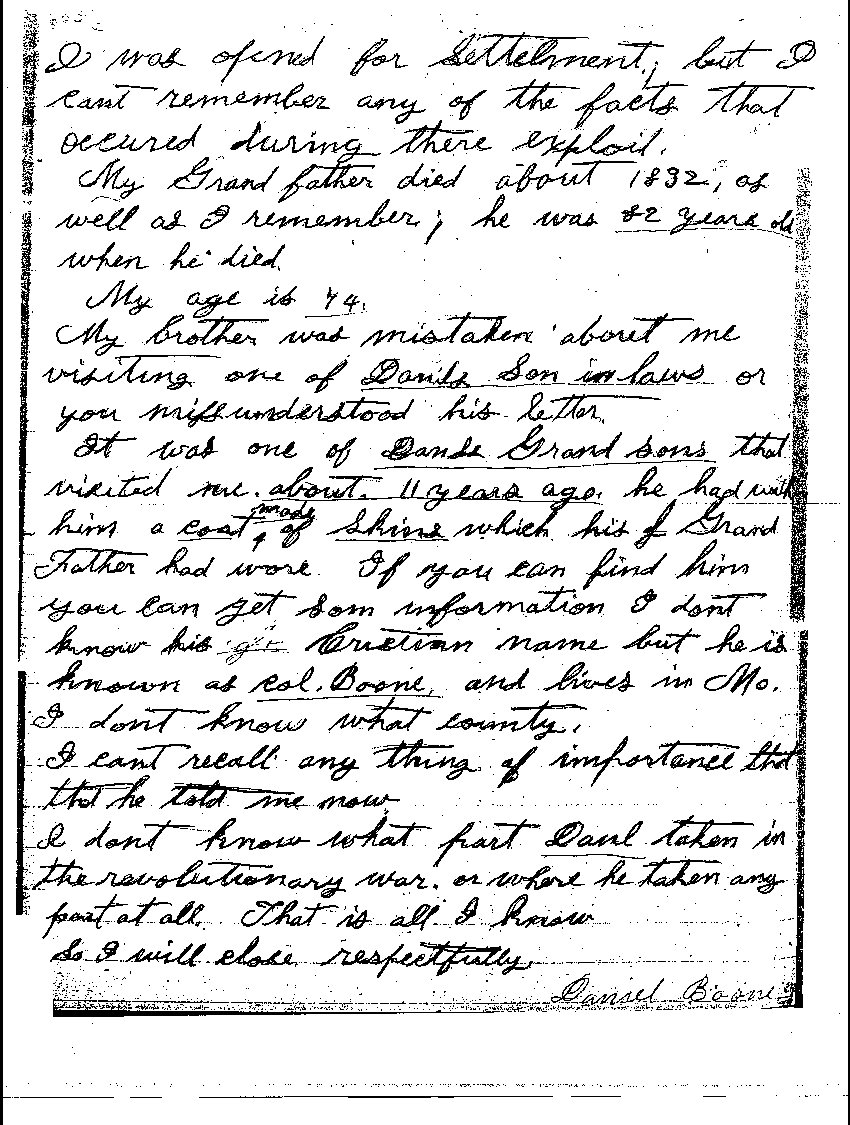 I was opened for Settelment; but I
cant remember any of the facts that
occured during there exploit.
My Grand father died about 1832, as
well as I remember; he was 82 years old
when he died.
My age is 74.
My brother was mistaken about me
visiting one of Danils Son in laws or
you missunderstood his letter.
It was one of Danls Grand sons that
visited me. about. 11 years ago. he had with
him a coat made of Skins which his Grand
Father had wore. If you can find him
you can get som information I dont
know his Cristian name but he is
known as col. Boone, and lives in Mo.
I dont know what county.
I cant recall any thing of importance that
that he told me now
I dont know what part Danl taken in
the revolutionary war. or where he taken any
part at all. That is all I know
So I will close respectfully.
Daniel Boone